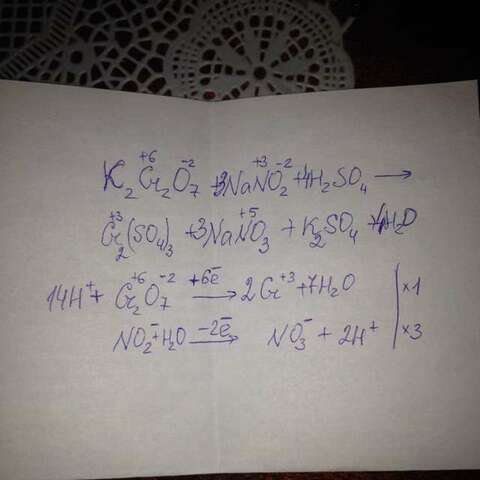 K₂Cr₂⁺⁶O₇⁻² + 3NaN⁺³O₂⁻² + 4H₂SO₄ →
Cr₂⁺³(SO₄)₃ + 3NaN⁺⁵O₃ + K₂SO₄ + 4H₂O
14H⁺ + Cr₂⁺⁶O₇⁻² +6ē → 2Cr⁺³ + 7H₂O | ×1
NO₂⁻ + H₂O −2ē → NO₃⁻ + 2H⁺ | ×3